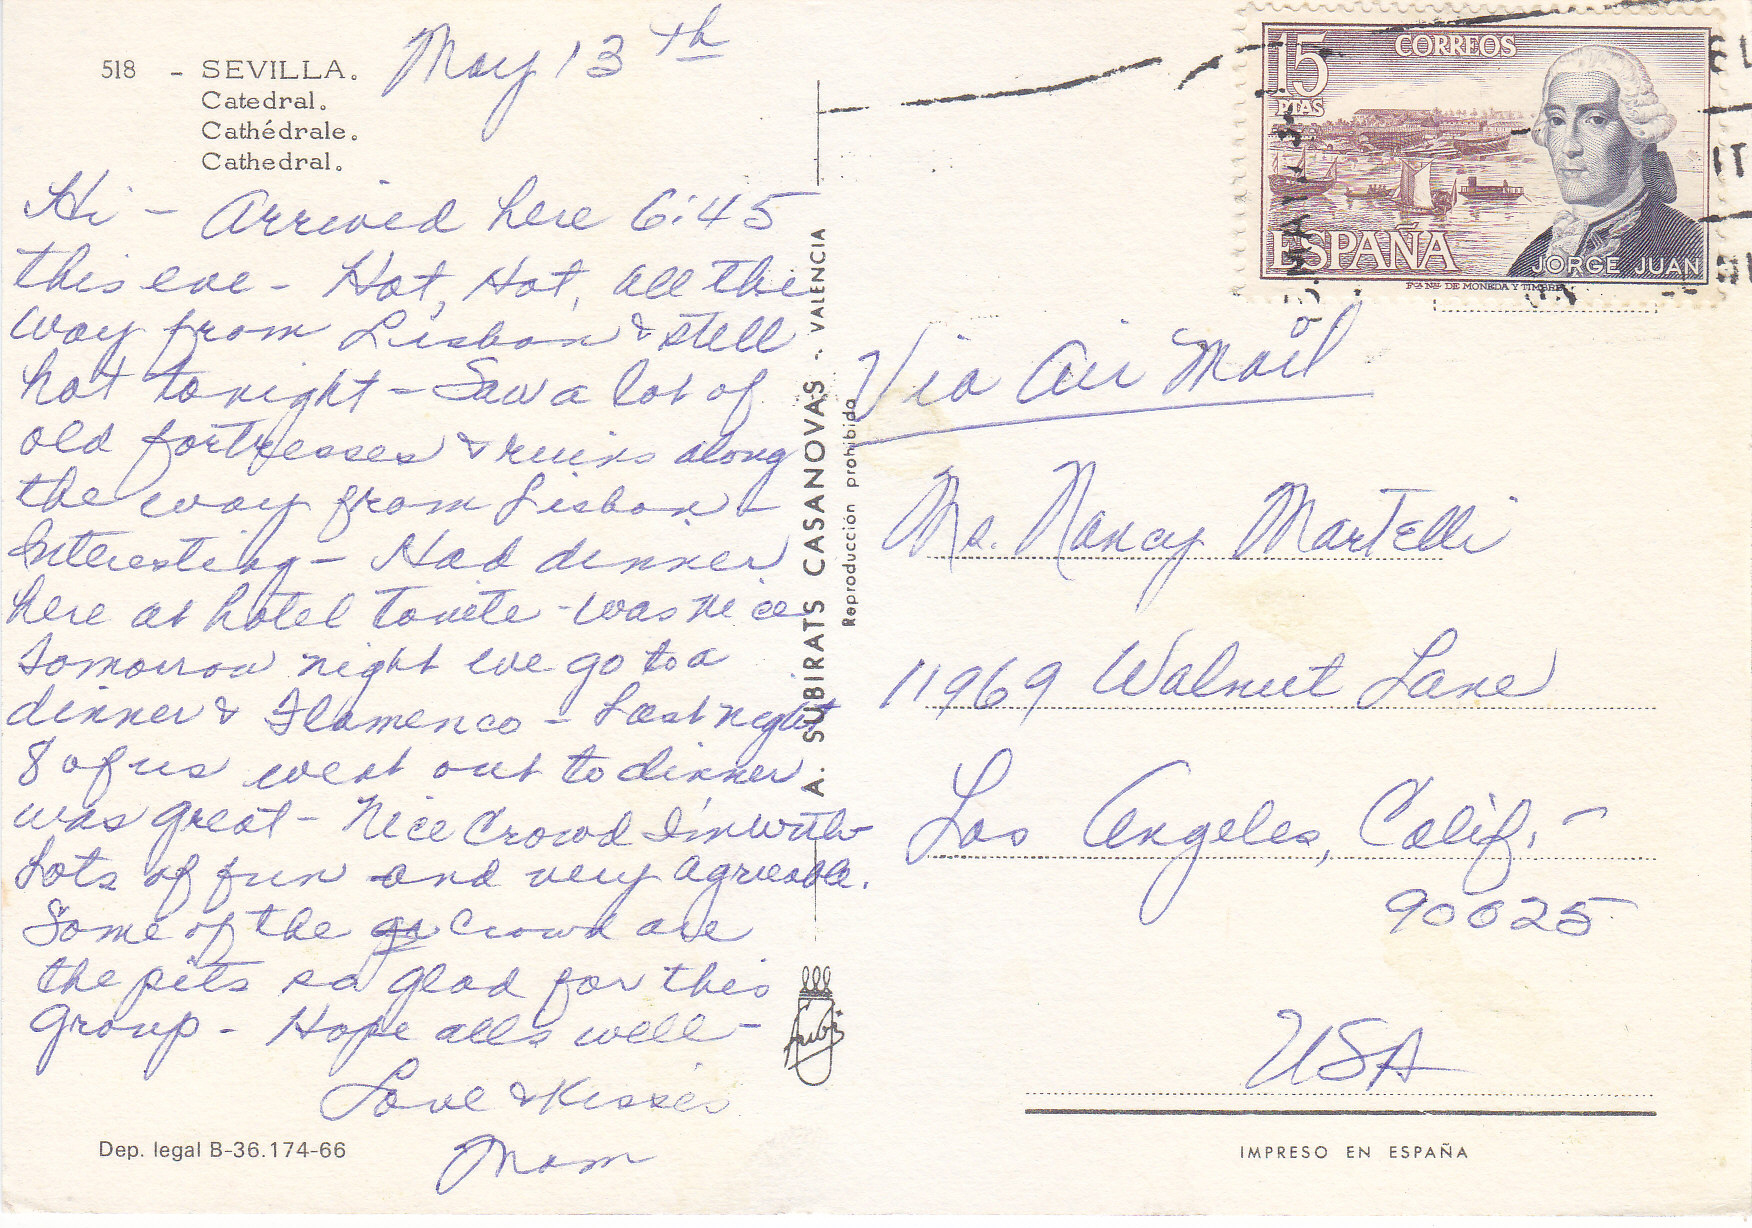 518 - SEVILLA.
Catedral.
Cathédrale.
Cathedral.
May 13th
Hi - Arrived here 6:45
this eve - Hot, Hot, all the
way from Lisbon & still
hot tonight - Saw a lot of
old fortresses & ruins along
the way from Lisbon -
Interesting - Had dinner
here at hotel tonite - was nice
Tomorrow night we go to a
dinner & Flamenco - Last night
8 of us went out to dinner
was great - Nice Crowd I'm with
Lots of fun and very agreeable.
Some of the crowd are
the pits so glad for this
group - Hope alls well -
Love & Kisses
Mom
Dep. legal B-36.174-66
A. SUBIRATS CASANOVAS - VALENCIA
Reproducción prohibida
15
PTAS
CORREOS
ESPAÑA
JORGE JUAN
F.ca N.al DE MONEDA Y TIMBRE
Via Air Mail
Ms. Nancy Martelli
11969 Walnut Lane
Los Angeles, Calif. -
90025
USA
IMPRESO EN ESPAÑA